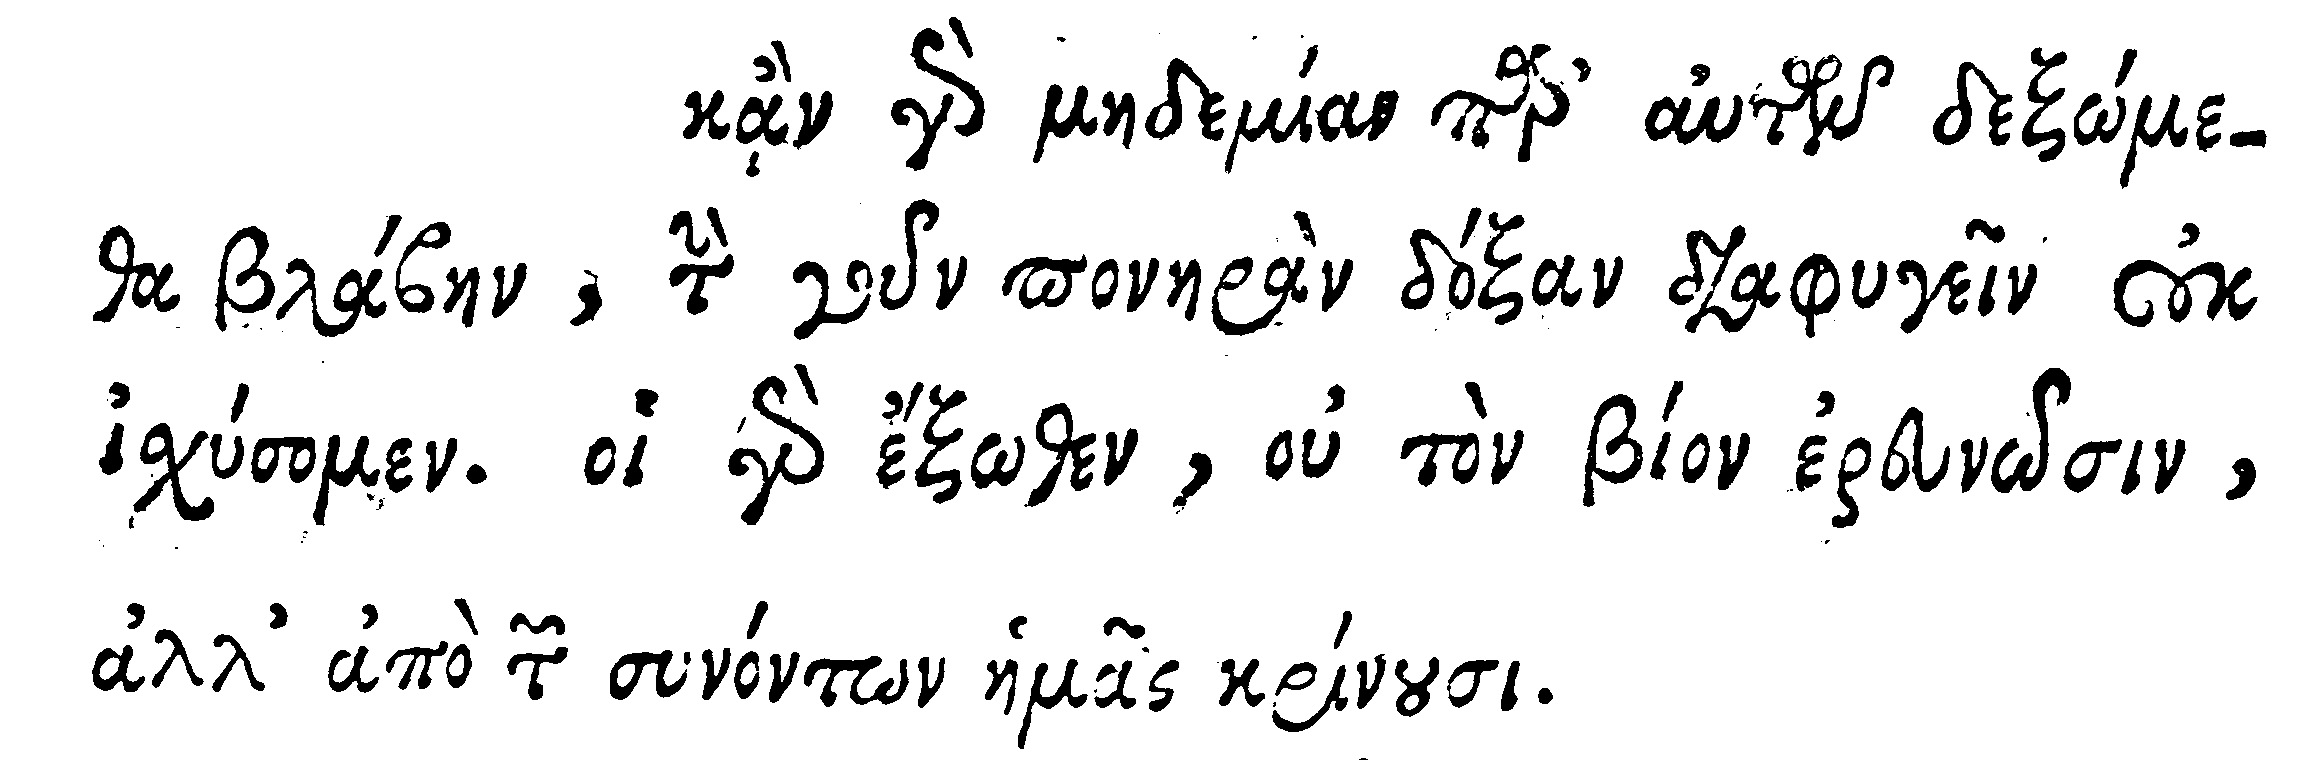 κᾂν γὰρ μηδεμίαν παρ' αὐτῶν δεξώμε-
θα βλάβην, τὴν γοῦν πονηρὰν δόξαν διαφυγεῖν οὐκ
ἰχύσομεν. οἱ γὰρ ἔξωθεν, οὐ τὸν βίον ἐρευνῶσιν,
ἀλλ' ἀπὸ τῶν συνόντων ἡμᾶς κρίνουσι.